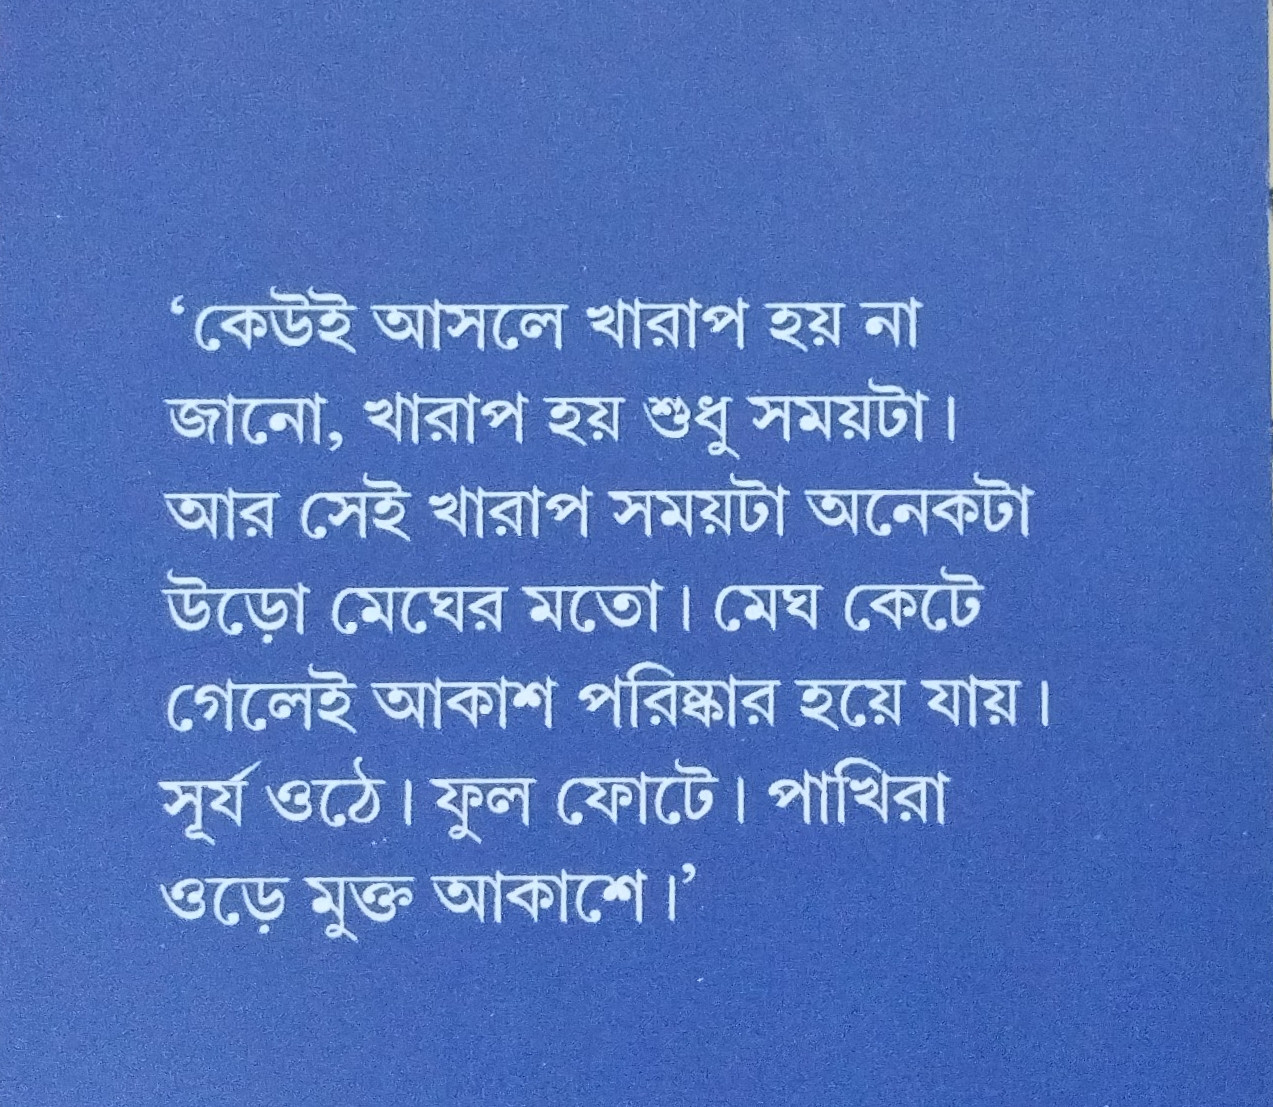 ‘কেউই আসলে খারাপ হয় না
জানো, খারাপ হয় শুধু সময়টা।
আর সেই খারাপ সময়টা অনেকটা
উড়ো মেঘের মতো। মেঘ কেটে
গেলেই আকাশ পরিষ্কার হয়ে যায়।
সূর্য ওঠে। ফুল ফোটে। পাখিরা
ওড়ে মুক্ত আকাশে।’